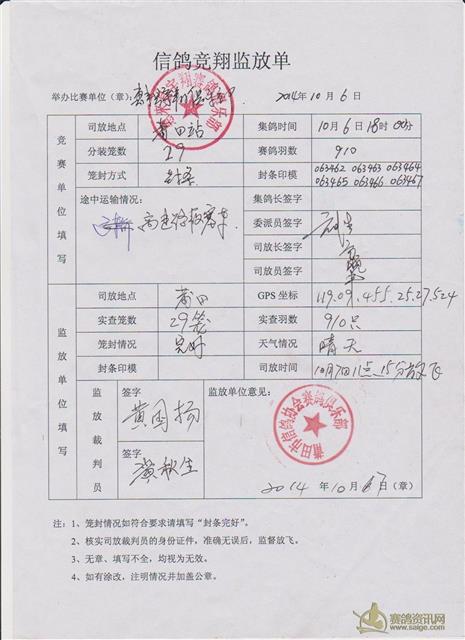 信鸽竞翔监放单
举办比赛单位（章）： 2014年10月6日
竞赛单位填写
司放地点 莆田站 集鸽时间 10月6日18时00分
分装笼数 29 赛鸽羽数 910
笼封方式 封条 封条印模 063462 063463 063464
063465 063466 063467
途中运输情况： 集鸽长签字
委派员签字
司放长签字
司放员签字
监放单位填写
司放地点 莆田 GPS 坐标 119.09.455.25.27.524
实查笼数 29笼 实查羽数 910只
笼封情况 完好 天气情况 晴天
封条印模 司放时间 10月7日11点15分放飞
监放裁判员
签字 监放单位意见：
黄国扬
签字
黄秋生
莆田市信鸽协会赛鸽俱乐部
2014年10月7日（章）
注：1、笼封情况如符合要求请填写“封条完好”。
2、核实司放裁判员的身份证件，准确无误后，监督放飞。
3、无章、填写不全，均视为无效。
4、如有涂改，注明情况并加盖公章。
赛鸽资讯网
www.saige.com